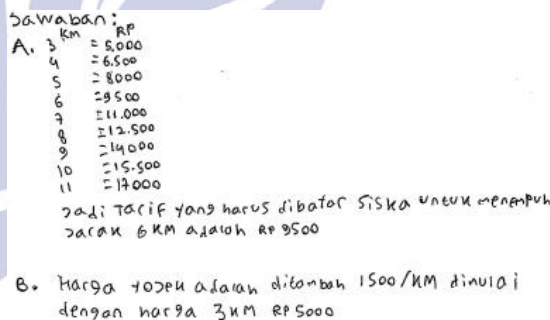 Jawaban:
KM RP
A. 3 = 5.000
4 = 6.500
5 = 8000
6 = 9500
7 = 11.000
8 = 12.500
9 = 14000
10 = 15.500
11 = 17000
Jadi Tarif yang harus dibatar Siska untuk menempuh
Jarak 6 KM adaloh RP 9500
B. Harga tojek adalah ditambah 1500/KM dimulai
dengan harga 3 KM RP 5000